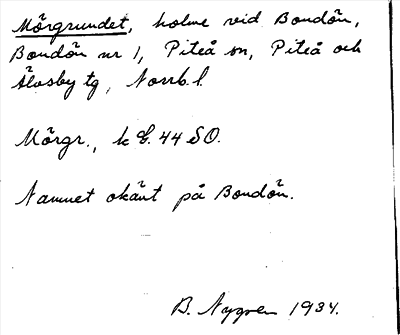 Mörgrundet, holme vid Bondön,
Bondön nr 1, Piteå sn, Piteå och
Älvsby tg, Norrb. l.
Mörgr., k E. 44 SO.
Namnet okänt på Bondön.
B. Nygren 1934.